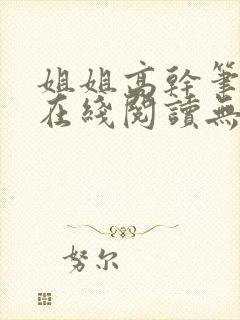 姐姐高幹筆
在綫閱讀無
努尔